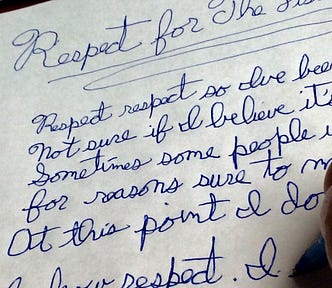 Respect for The
Respect respect so I've been
Not sure if I believe it's
Sometimes some people
for reasons sure to
At this point I do
respect. I